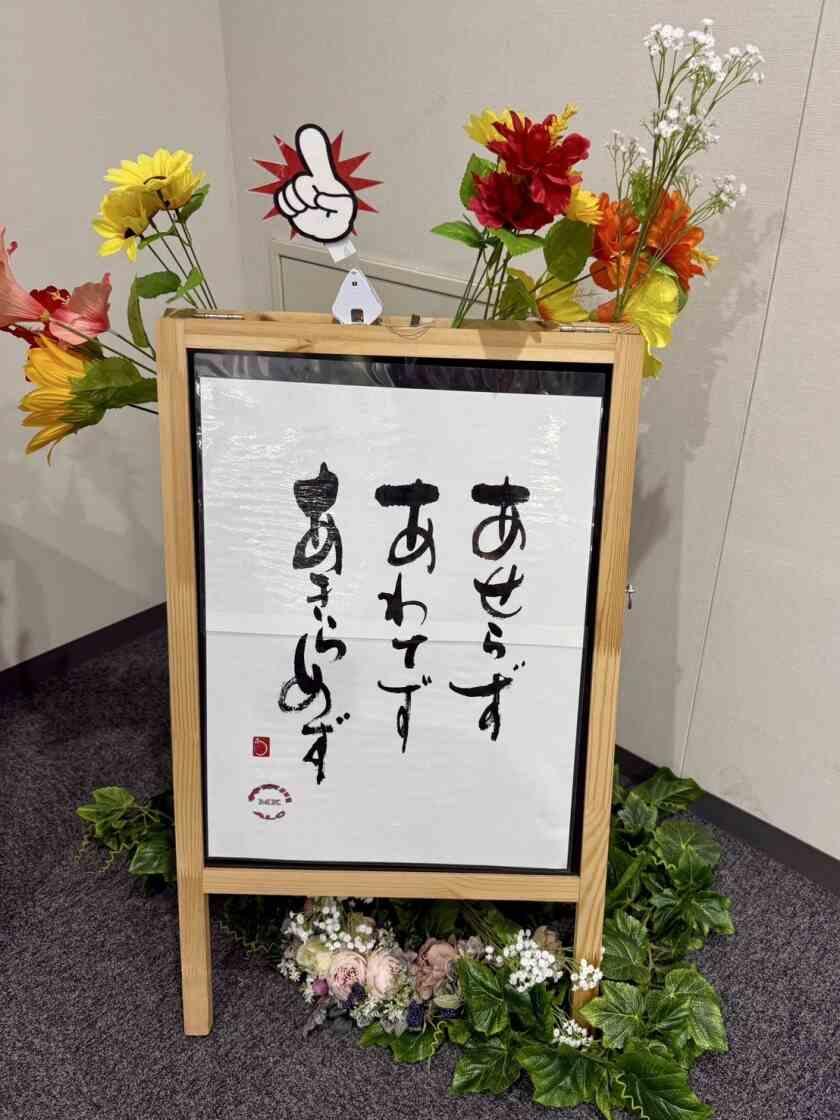 あせらず
あわてず
あきらめず
MK